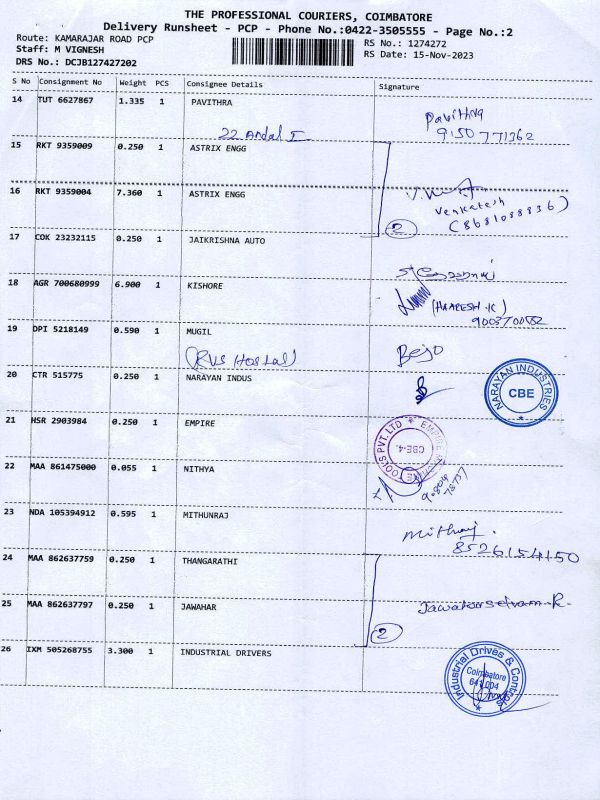 THE PROFESSIONAL COURIERS, COIMBATORE
Delivery Runsheet - PCP - Phone No.:0422-3505555 - Page No.:2
Route: KAMARAJAR ROAD PCP
RS No.: 1274272
Staff: M VIGNESH
RS Date: 15-Nov-2023
DRS No.: DCJB127427202
S No Consignment No Weight PCS Consignee Details Signature
14 TUT 6627867 1.335 1 PAVITHRA
Pavithra
22 Andal I 9150771362
15 RKT 9359009 0.250 1 ASTRIX ENGG
16 RKT 9359004 7.360 1 ASTRIX ENGG
Venkatesh
② (8681088836)
17 COK 23232115 0.250 1 JAIKRISHNA AUTO
18 AGR 700680999 6.900 1 KISHORE
(HAARESH.K)
19 DPI 5218149 0.590 1 MUGIL
(RVS Hostall) Bejo
20 CTR 515775 0.250 1 NARAYAN INDUS
NARAYAN INDUSTRIES
CBE
21 HSR 2903984 0.250 1 EMPIRE
TOOLS PVT. LTD EMPIRE
CBE-4.
22 MAA 861475000 0.055 1 NITHYA
23 NDA 105394912 0.595 1 MITHUNRAJ
Mithunraj
8526154150
24 MAA 862637759 0.250 1 THANGARATHI
25 MAA 862637797 0.250 1 JAWAHAR
Jawaharselvam.R.
②
26 IXM 505268755 3.300 1 INDUSTRIAL DRIVERS
Industrial Drives & Controls
Coimbatore
641 004